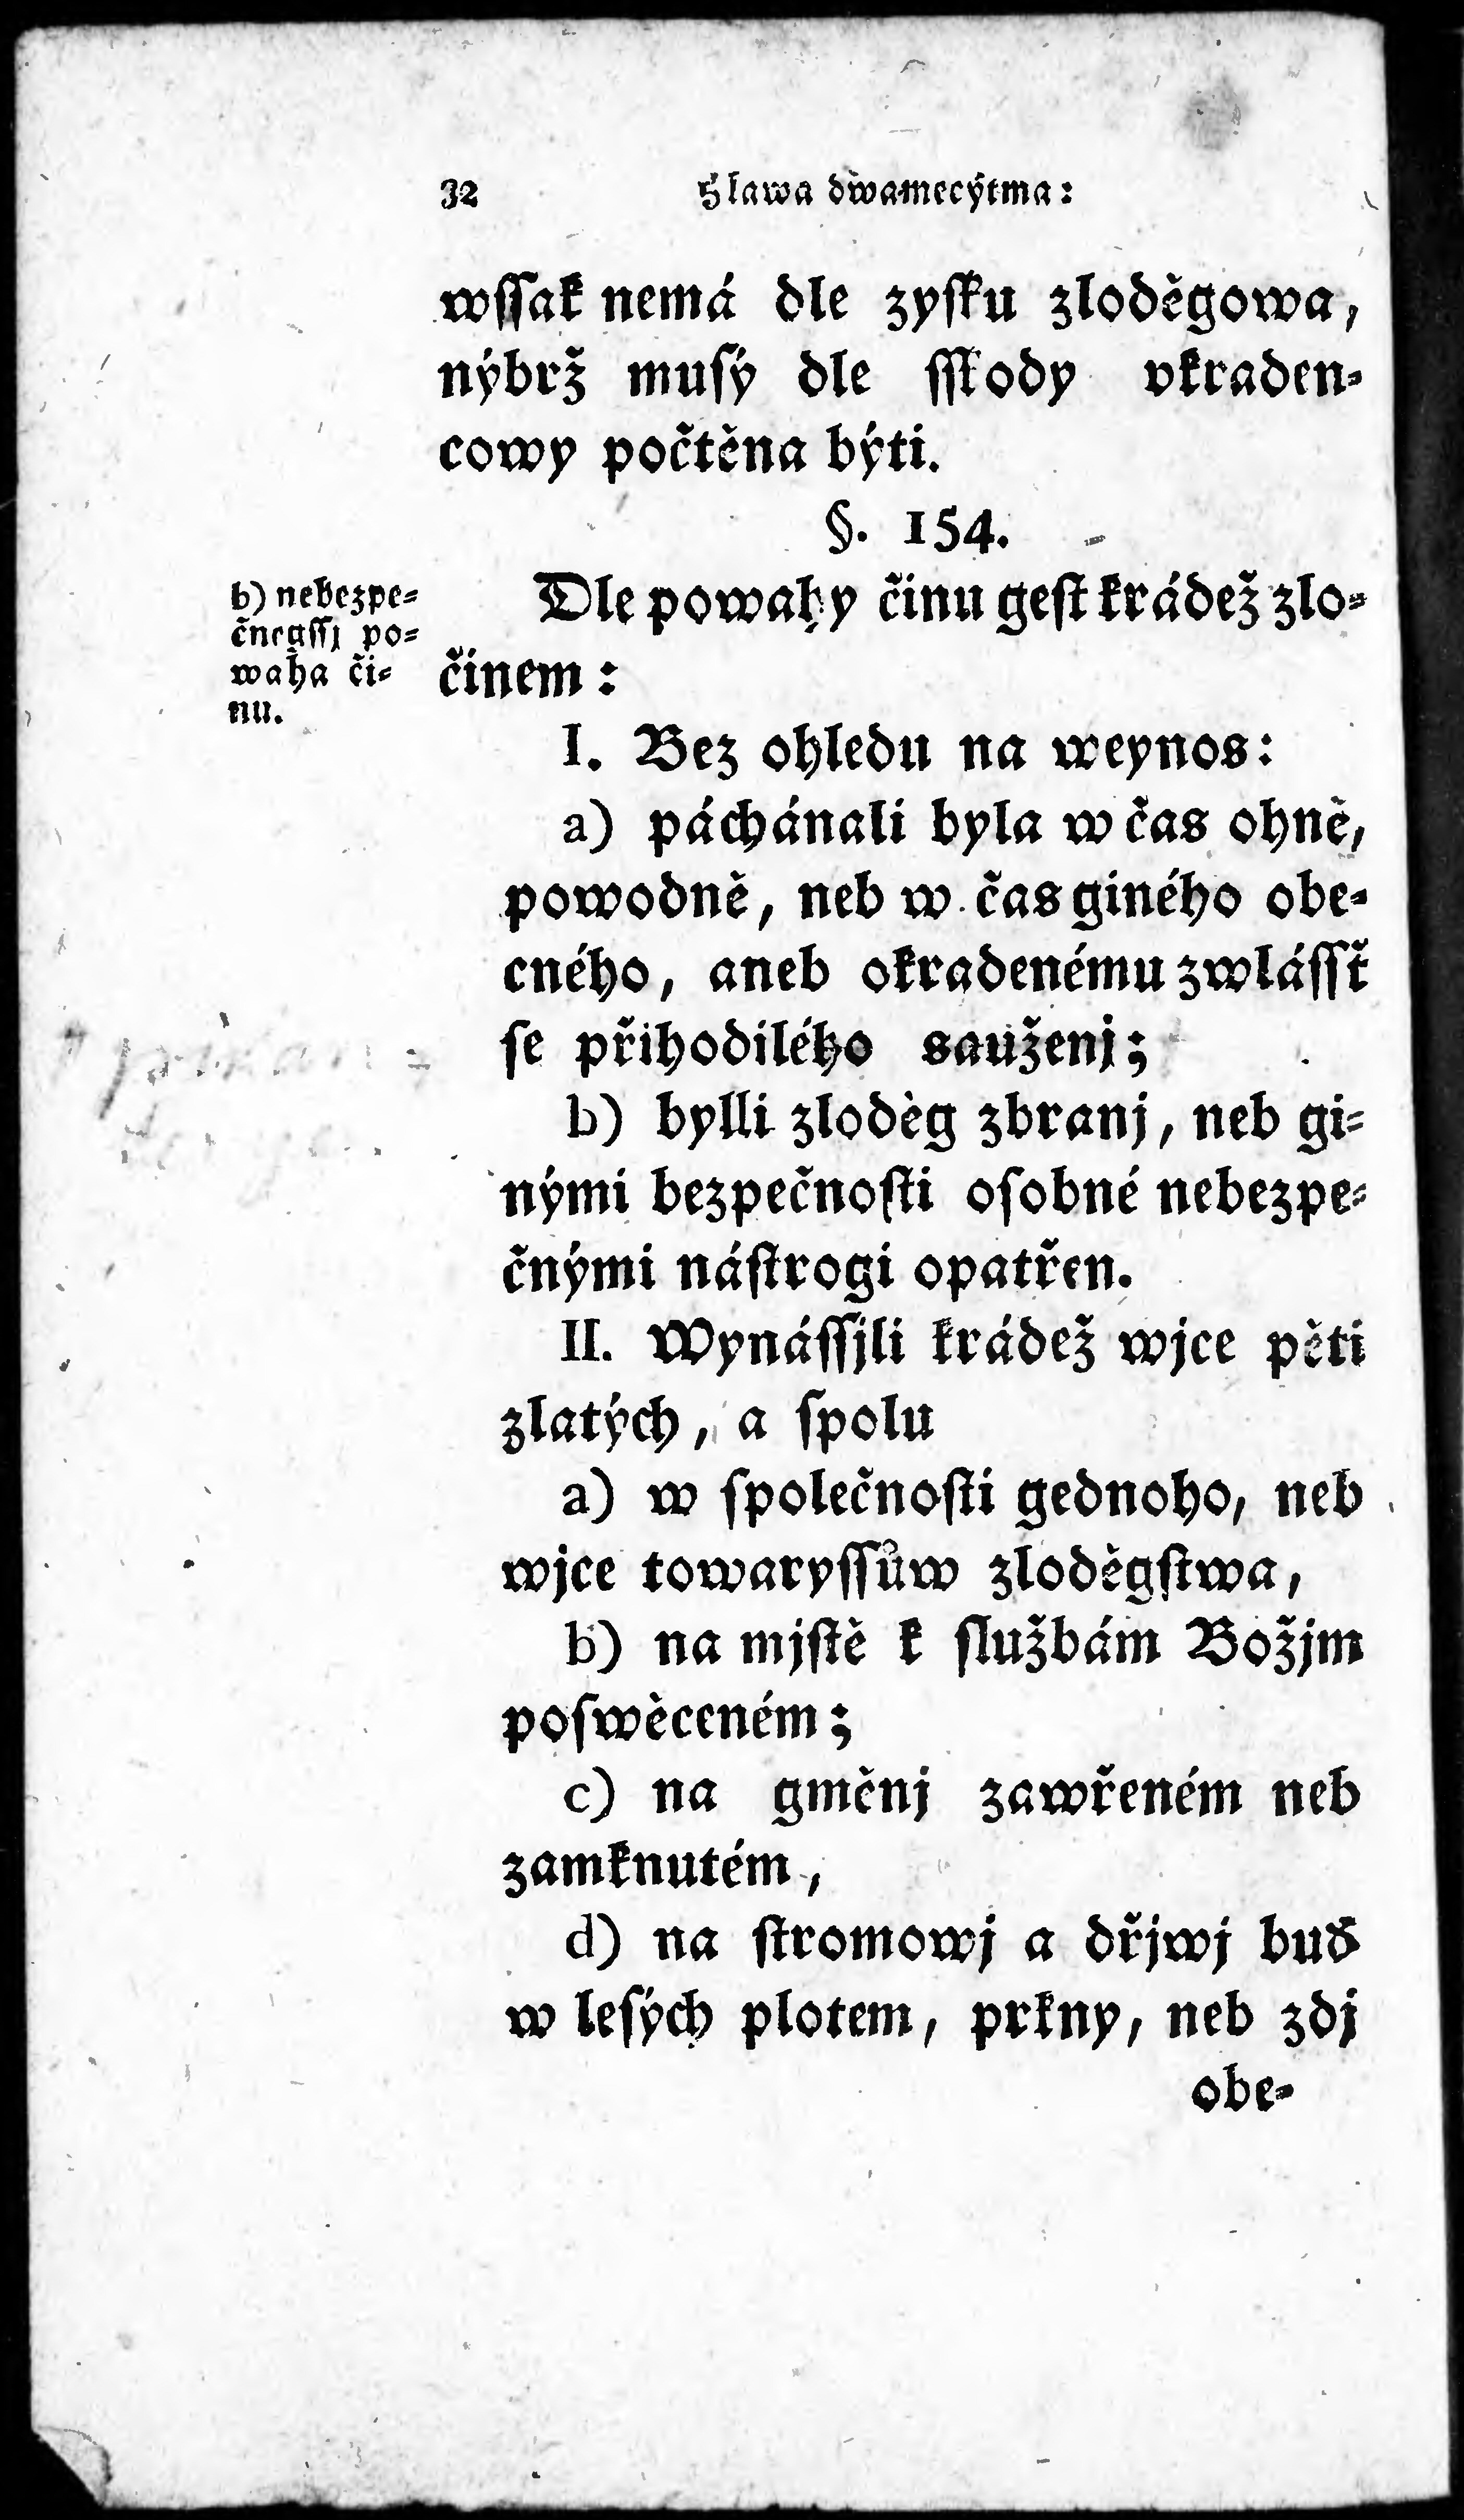 32 Hlawa dwamecýtma:
wſſak nemá dle zyſku zloděgowa,
nýbrž muſý dle ſſkody vkraden-
cowy počtěna býti.
§. 154.
b) nebezpe-
čnegſſj po-
waha či-
nu.
Dle powahy činu geſt krádež zlo-
činem:
I. Bez ohledu na weynos:
a) páchánali byla w čas ohně,
powodně, neb w čas giného obe-
cného, aneb okradenému zwláſſť
ſe přihodilého sauženj;
b) bylli zloděg zbranj, neb gi-
nými bezpečnoſti oſobné nebezpe-
čnými náſtrogi opatřen.
II. Wynáſſjli krádež wjce pěti
zlatých, a ſpolu
a) w ſpolečnoſti gednoho, neb
wjce towaryſſůw zloděgſtwa,
b) na mjſtě k ſlužbám Božjm
poſwěceném;
c) na gměnj zawřeném neb
zamknutém,
d) na ſtromowj a dřjwj buď
w leſých plotem, prkny, neb zdj
obe-